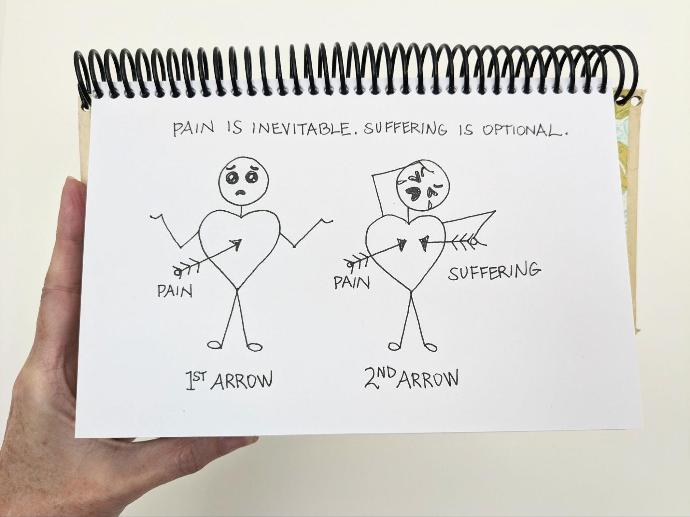 PAIN IS INEVITABLE. SUFFERING IS OPTIONAL.
PAIN
PAIN
SUFFERING
1ST ARROW
2ND ARROW